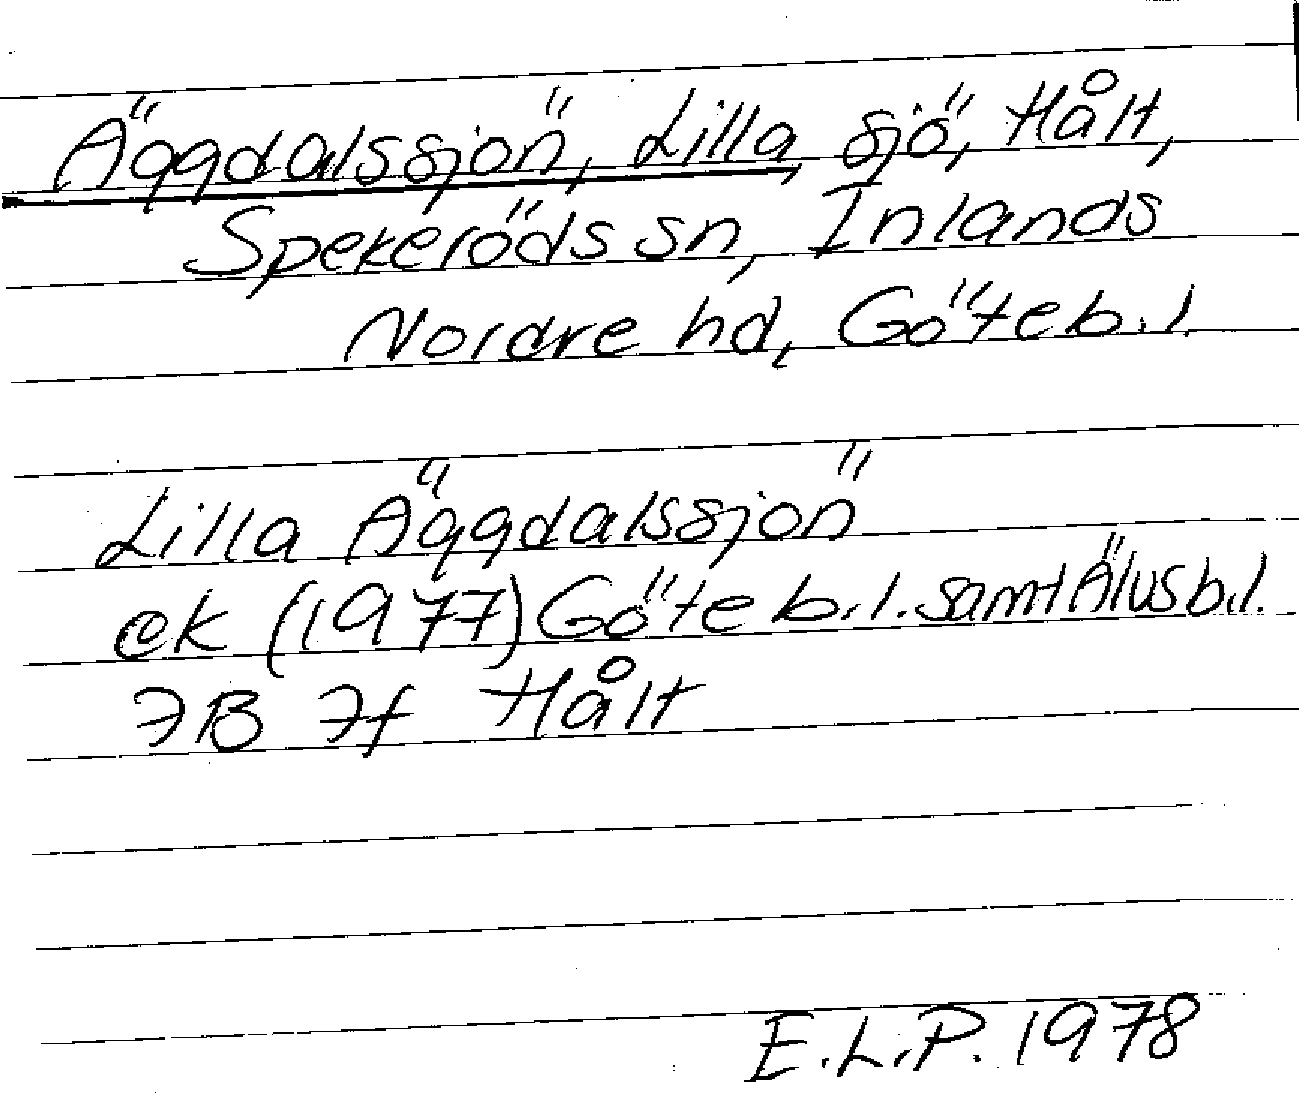 Äggdalssjön, Lilla, sjö, Hålt,
Spekeröds sn, Inlands
Nordre hd, Göteb.l.
Lilla Äggdalssjön
ek (1977) Göteb.l. samt Älvsb.l.
7B 7f Hålt
E.L.P. 1978